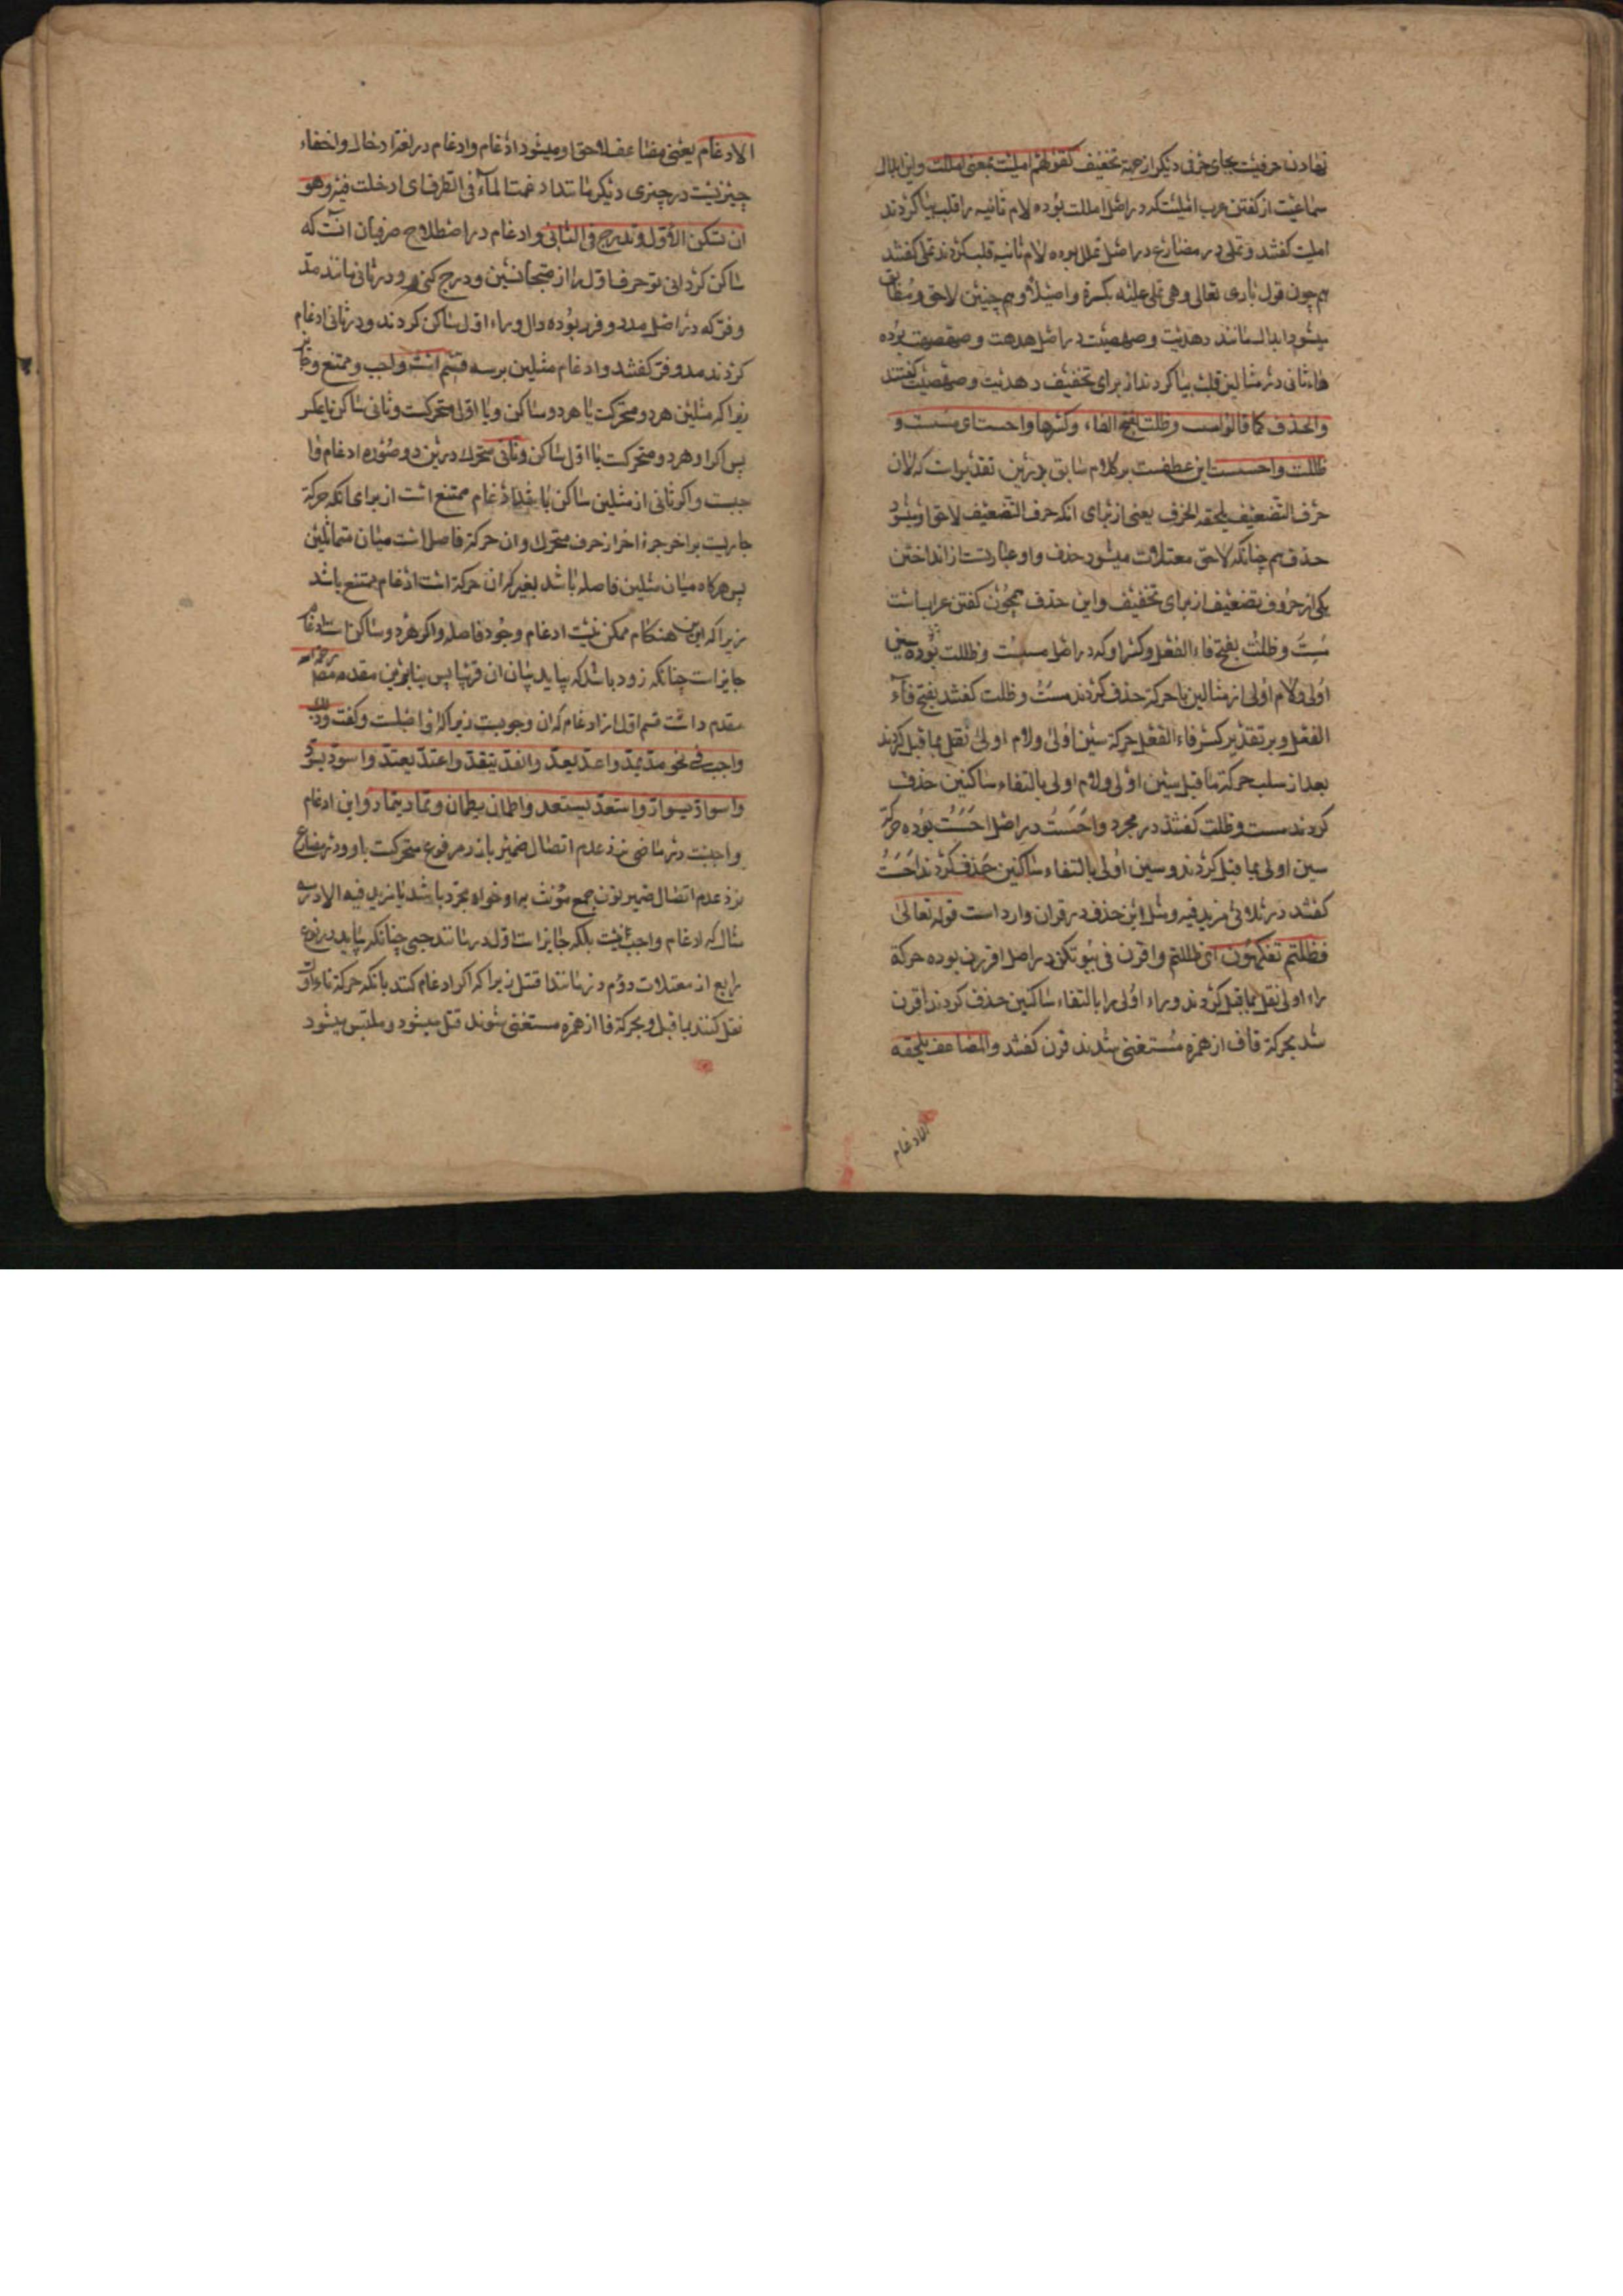 نهادن حرفیت بجای حرفی دیکر از جهة تخفیف کقولهم املیت بمعنی امللت و این ابدال
سماعیت از کفتن عرب املیت که در اصل امللت بوده لام ثانیه را قلب بیا کردند
املیت کفتند و تملی در مضارع در اصل تملل بوده لام ثانیه قلب کردند تملی کفتند
هم چون قول باری تعالی وهی تملی علیه بکرة واصیلا و هم چنین لاحق
میشود ابدال مانند دهدیت و صهصیت در اصل دهدهت و صهصهت بوده
هاء ثانی در مثالین قلب بیا کردند از برای تخفیف دهدیت و صهصیت کفتند
والحذف کما قالوا مست وظلت بفتح الفاء وکسرها واحست ای مسست و
ظللت واحسست این عطفست بر کلام سابق برین تقدیر است که لان
حرف التضعیف یلحقه الحذف یعنی از برای انکه حرف التضعیف لاحق او میشود
حذف هم چنانکه لاحق معتلات میشود حذف و او عبارتست از انداختن
یکی از حروف تضعیف از برای تخفیف و این حذف همچون کفتن عربست
مست وظلت بفتح فاء الفعل وکسر او که در اصل مسست وظللت بوده سین
اولی و لام اولی از مثالین با حرکة حذف کردند مست وظلت کفتند بفتح فاء
الفعل و بر تقدیر کسر فاء الفعل حرکة سین اولی و لام اولی نقل بما قبل کردند
بعد از سلب حرکة ما قبل سین اولی و لام اولی بالتقاء ساکنین حذف
کردند مست وظلت کفتند در مجرد و احست در اصل احسست بوده حرکة
سین اولی بما قبل کردند و سین اولی بالتقاء ساکنین حذف کردند احست
کفتند در ثلاثی مزید فیه و مثل این حذف در قران وارد است قوله تعالی
فظلتم تفکهون ای ظللتم و اقرن فی بیوتکن در اصل اقررن بوده حرکة
راء اولی نقل بما قبل کردند و راء اولی را بالتقاء ساکنین حذف کردند اقرن
شد بحرکة قاف از همزه مستغنی شدند قرن کفتند والمضاعف یلحقه
الادغام
الادغام یعنی مضاعف لاحق او میشود ادغام و ادغام در لغة ادخال و اخفاء
چیزیست در چیزی دیکر مانند ادغمت الماء فی الظرف ای ادخلت فیه وهو
ان تسکن الاول وتدرج فی الثانی و ادغام در اصطلاح صرفیان انست که
ساکن کردانی تو حرف اول را از متجانسین و درج کنی در ثانی مانند مدّ
و فرّ که در اصل مدد و فرر بوده دال و راء اول ساکن کردند و در ثانی ادغام
کردند مد و فر کفتند و ادغام مثلین بر سه قسم است واجب و ممتنع و جایز
زیرا که مثلین هر دو متحرکست یا هر دو ساکن و یا اول متحرکست و ثانی ساکن یا عکس
پس اکر او هر دو متحرکست یا اول ساکن و ثانی متحرک درین دو صوره ادغام وا
جبست و اکر ثانی از مثلین ساکن باشد ادغام ممتنع است از برای انکه حرکة
جاریست بر اخر جزء اخر از حرف متحرک و ان حرکة فاصل است میان متماثلین
پس هر کاه میان مثلین فاصله باشد بغیر که ان حرکة است ادغام ممتنع باشد
زیرا که این هنکام ممکن نیست ادغام وجود فاصله و اکر هر دو ساکن است ادغام
جایز است چنانکه زود باشد که بیاید بیان ان قریبا پس بنابرین مقدمه مص رحمه الله
مقدم داشت قسم اول از ادغام که ان وجوبیست زیرا که او اصلست و کفت وذلک
واجب فی نحو مدّ یمدّ واعدّ یعدّ وانقدّ ینقدّ واعتدّ یعتدّ واسودّ یسودّ
واسوادّ یسوادّ واستعدّ یستعدّ واطمان یطمان وتمادّ یتمادّ و این ادغام
واجبست در ماضی نزد عدم اتصال ضمیر بارز مرفوع متحرکست باو و در مضارع
نزد عدم اتصال ضمیر نون جمع مؤنث براو خواه مجرد باشد یا مزید فیه الا در سه
مثال که ادغام واجب نیست بلکه جایز است اول در مانند حیی چنانکه بیاید در نوع
رابع از معتلات دوم در مانند اقتتل زیرا که اکر ادغام کنند بانکه حرکة تاء اول
نقل کنند بما قبل و بحرکة فا از همزه مستغنی شوند قتل میشود و ملتبس میشود